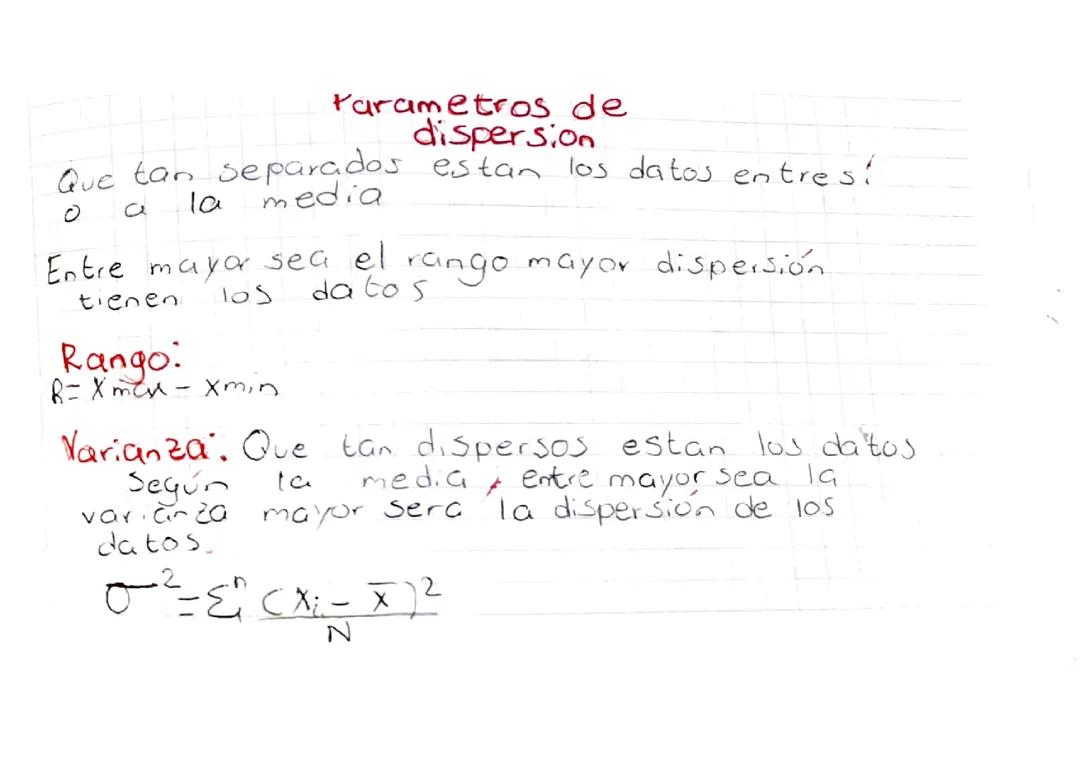 Parametros de
dispersion
Que tan separados estan los datos entre sí
o a la media
Entre mayor sea el rango mayor dispersión
tienen los datos
Rango:
R= Xmax - xmin
Varianza: Que tan dispersos estan los datos
Según la media, entre mayor sea la
varianza mayor sera la dispersión de los
datos.
σ² = Σᵢⁿ (Xi - x̄)²
N